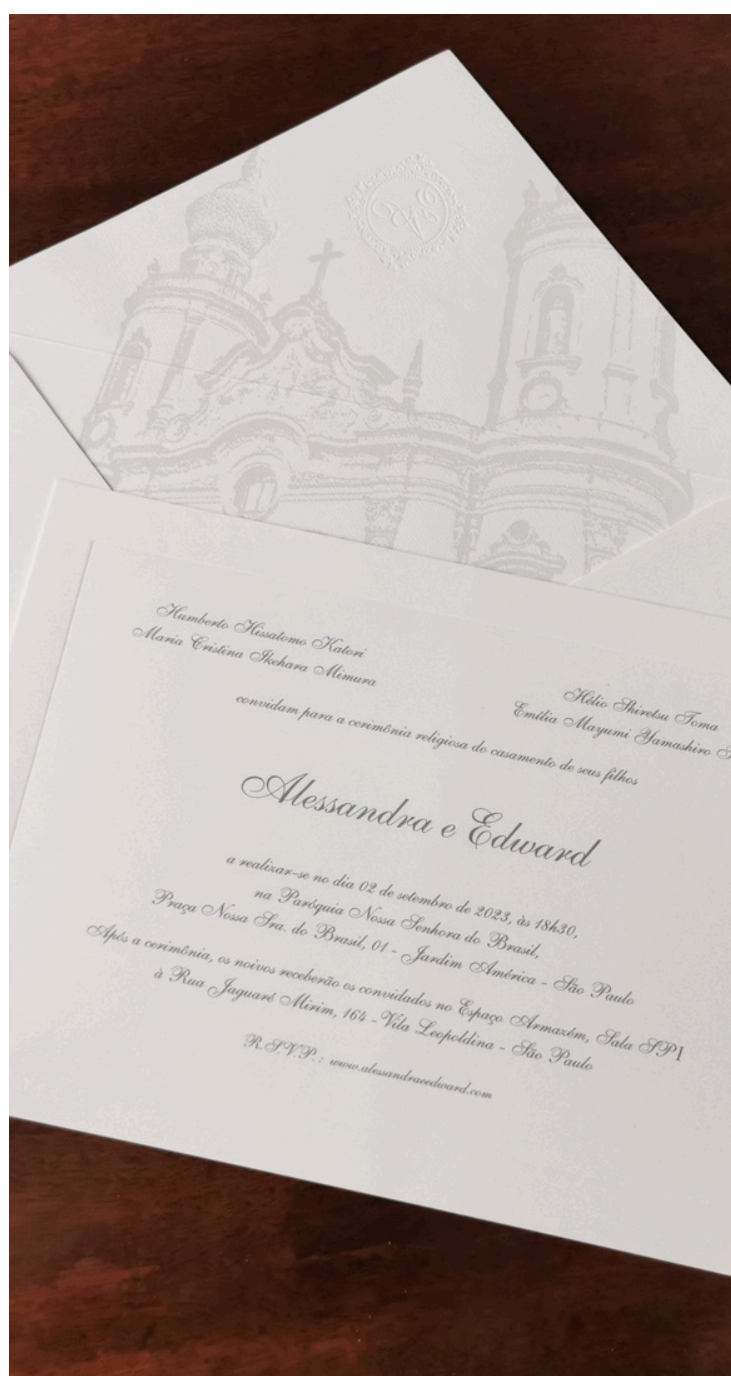 Humberto Hissatomo Katori
Maria Cristina Ikehara Mimura
Hélio Shiretsu Toma
Emília Mayumi Yamashiro
convidam para a cerimônia religiosa do casamento de seus filhos
Alessandra e Edward
a realizar-se no dia 02 de setembro de 2023, às 18h30,
na Paróquia Nossa Senhora do Brasil,
Praça Nossa Sra. do Brasil, 01 - Jardim América - São Paulo
Após a cerimônia, os noivos receberão os convidados no Espaço Armazém, Sala SPI
à Rua Jaguaré Mirim, 164 - Vila Leopoldina - São Paulo
R.S.V.P.: www.alessandraeedward.com